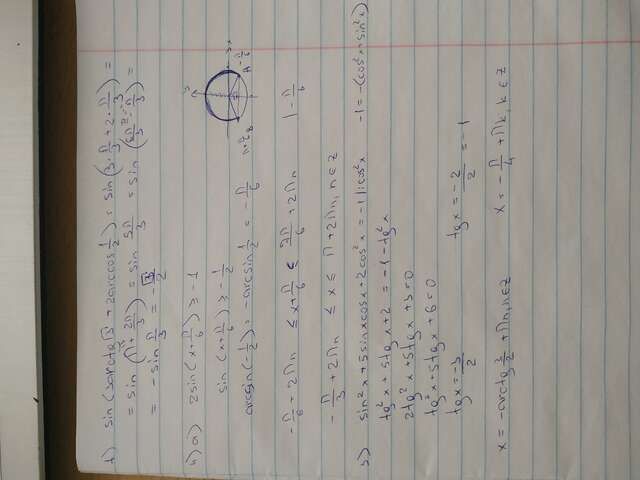 1) sin(3arctg√3 + 2arccos 1/2) = sin(3·π/3 + 2·π/3) =
= sin(π + 2π/3) = sin 5π/3 = sin(
= -sin π/3 = -√3/2
4) a) 2sin(x+π/6) ≥ -1
sin(x+π/6) ≥ -1/2
arcsin(-1/2) = -arcsin 1/2 = -π/6
-π/6 + 2πn ≤ x+π/6 ≤ 7π/6 + 2πn |-π/6
-π/3 + 2πn ≤ x ≤ π + 2πn, n∈Z
5) sin²x + 5sinxcosx + 2cos²x = -1 |:cos²x -1 = -(cos²x+sin²x)
tg²x + 5tgx + 2 = -1 - tg²x
2tg²x + 5tgx + 3 = 0
tg²x + 5tgx + 6 = 0
tgx = -3/2 tgx = -2/2 = -1
x = -arctg 3/2 + πn, n∈Z x = -π/4 + πk, k∈Z